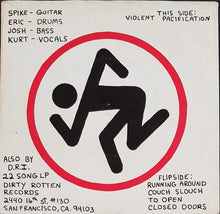 SPIKE- GUITAR
ERIC - DRUMS
JOSH - BASS
KURT - VOCALS
THIS SIDE:
VIOLENT PACIFICATION
ALSO BY
D.R.I.
22 SONG LP
DIRTY ROTTEN
RECORDS
2440 16th St. #130
SAN FRANCISCO, CA. 94103
FLIPSIDE:
RUNNING AROUND
COUCH SLOUCH
TO OPEN
CLOSED DOORS